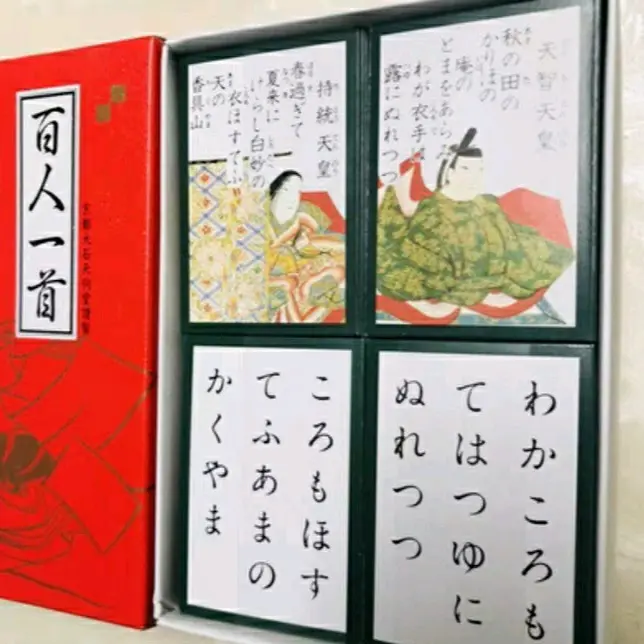 百人一首
京都大石天狗堂謹製
天智天皇
秋の田の
かりほの
庵の
とまをあらみ
わが衣手は
露にぬれつつ
持統天皇
春過ぎて
夏来に
けらし白妙の
衣ほすてふ
天の
香具山
わかころも
てはつゆに
ぬれつつ
ころもほす
てふあまの
かくやま